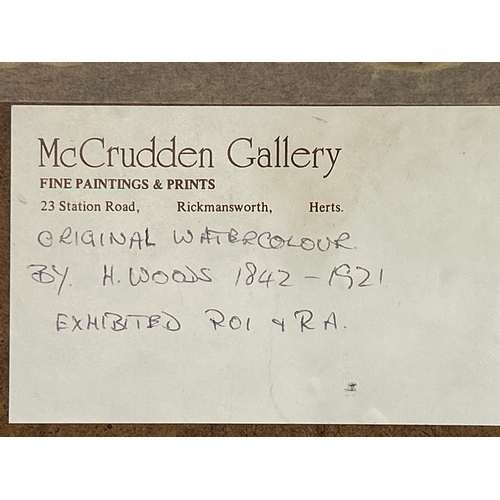 McCrudden Gallery
FINE PAINTINGS & PRINTS
23 Station Road, Rickmansworth, Herts.
ORIGINAL WATERCOLOUR.
BY. H. WOODS 1842 - 1921
EXHIBITED ROI & RA.